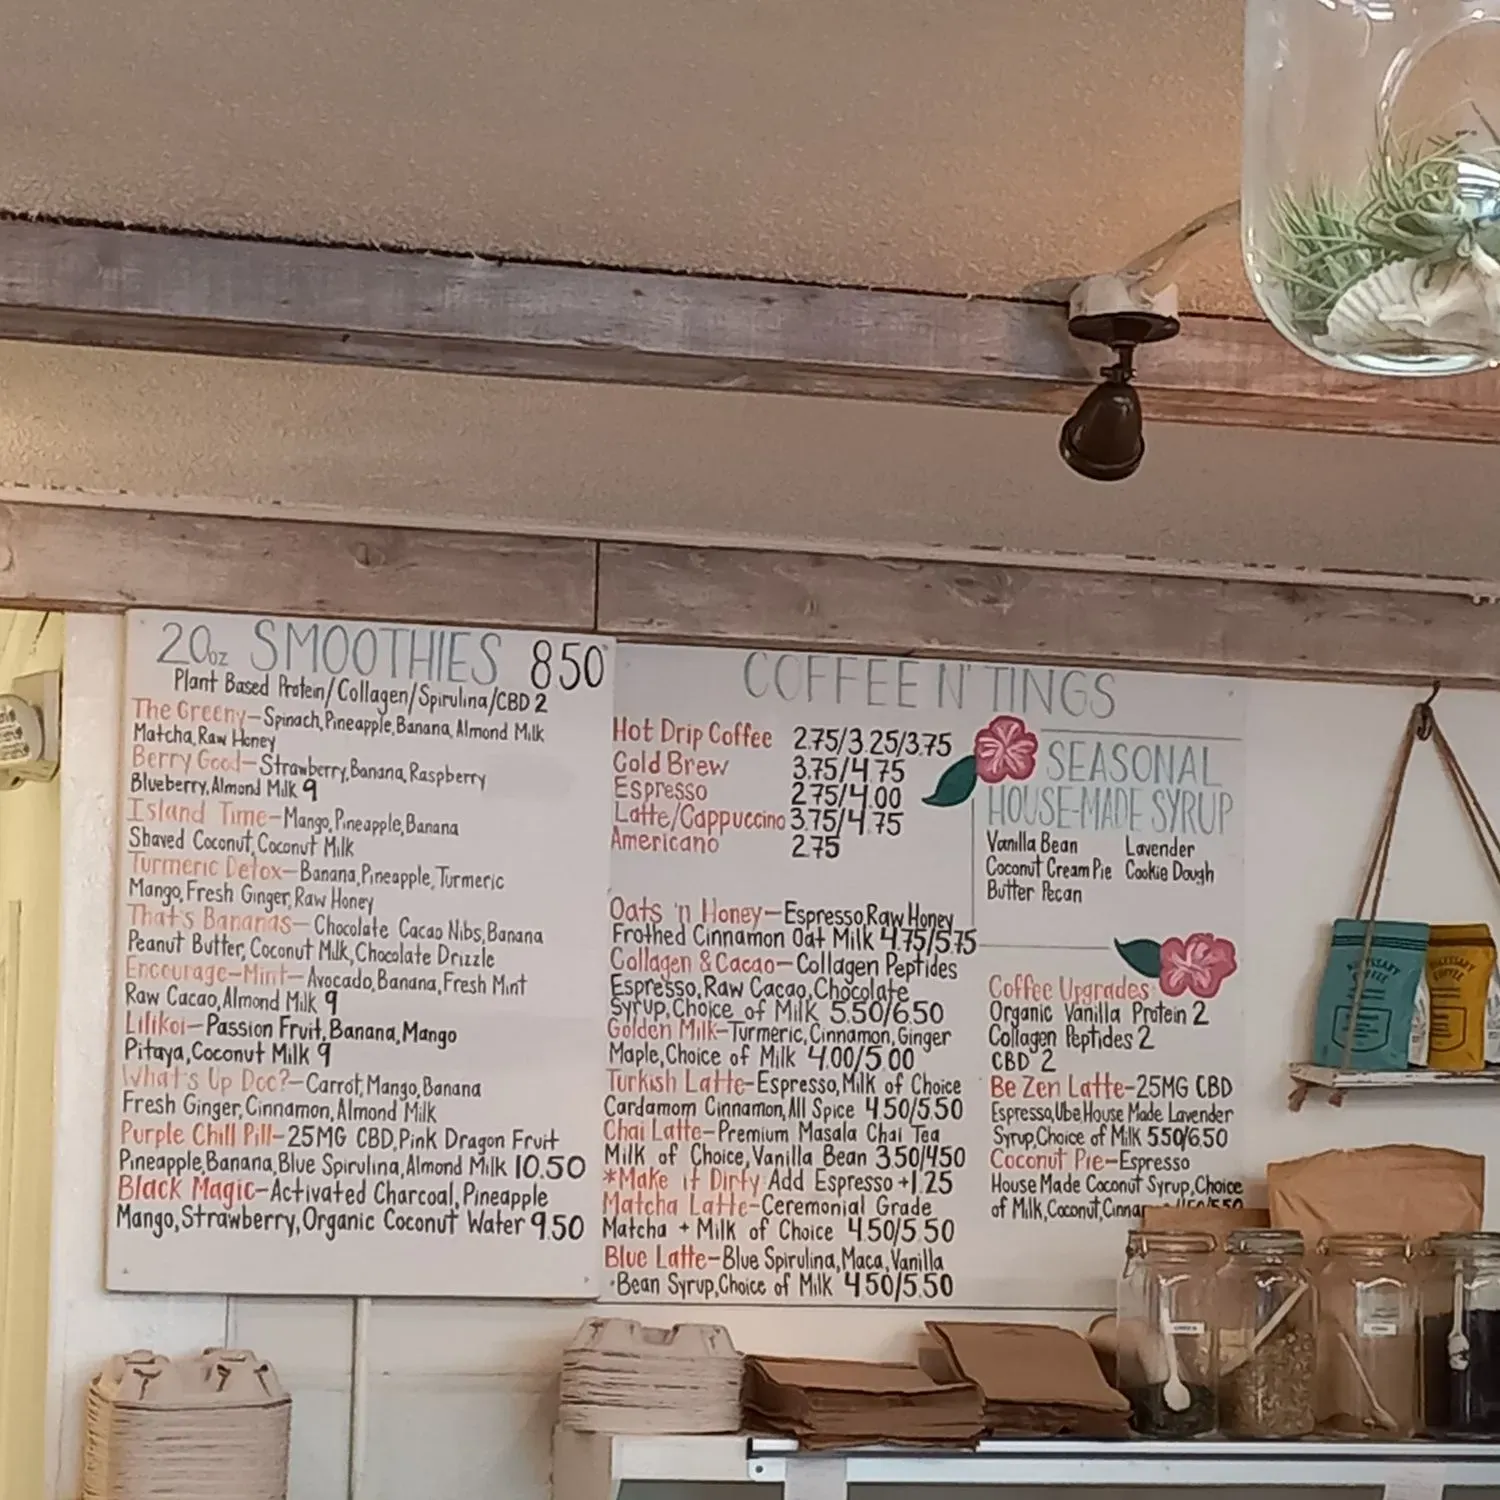 20oz SMOOTHIES 850
Plant Based Protein/Collagen/Spirulina/CBD 2
The Greeny-Spinach, Pineapple, Banana, Almond Milk
Matcha, Raw Honey
Berry Good-Strawberry, Banana, Raspberry
Blueberry, Almond Milk 9
Island Time-Mango, Pineapple, Banana
Shaved Coconut, Coconut Milk
Turmeric Detox-Banana, Pineapple, Turmeric
Mango, Fresh Ginger, Raw Honey
That's Bananas-Chocolate Cacao Nibs, Banana
Peanut Butter, Coconut Milk, Chocolate Drizzle
Encourage-Mint-Avocado, Banana, Fresh Mint
Raw Cacao, Almond Milk 9
Lilikoi-Passion Fruit, Banana, Mango
Pitaya, Coconut Milk 9
What's Up Doc?-Carrot, Mango, Banana
Fresh Ginger, Cinnamon, Almond Milk
Purple Chill Pill-25MG CBD, Pink Dragon Fruit
Pineapple, Banana, Blue Spirulina, Almond Milk 10.50
Black Magic-Activated Charcoal, Pineapple
Mango, Strawberry, Organic Coconut Water 9.50
COFFEE N' TINGS
Hot Drip Coffee 2.75/3.25/3.75
Cold Brew 3.75/4.75
Espresso 2.75/4.00
Latte/Cappuccino 3.75/4.75
Americano 2.75
Oats 'n Honey-Espresso, Raw Honey
Frothed Cinnamon Oat Milk 4.75/5.75
Collagen & Cacao-Collagen Peptides
Espresso, Raw Cacao, Chocolate
Syrup, Choice of Milk 5.50/6.50
Golden Milk-Turmeric, Cinnamon, Ginger
Maple, Choice of Milk 4.00/5.00
Turkish Latte-Espresso, Milk of Choice
Cardamom Cinnamon, All Spice 4.50/5.50
Chai Latte-Premium Masala Chai Tea
Milk of Choice, Vanilla Bean 3.50/4.50
*Make it Dirty Add Espresso +1.25
Matcha Latte-Ceremonial Grade
Matcha + Milk of Choice 4.50/5.50
Blue Latte-Blue Spirulina, Maca, Vanilla
Bean Syrup, Choice of Milk 4.50/5.50
SEASONAL
HOUSE-MADE SYRUP
Vanilla Bean Lavender
Coconut Cream Pie Cookie Dough
Butter Pecan
Coffee Upgrades
Organic Vanilla Protein 2
Collagen Peptides 2
CBD 2
Be Zen Latte-25MG CBD
Espresso, Ube House Made Lavender
Syrup, Choice of Milk 5.50/6.50
Coconut Pie-Espresso
House Made Coconut Syrup, Choice
of Milk, Coconut,
COFFEE
COFFEE